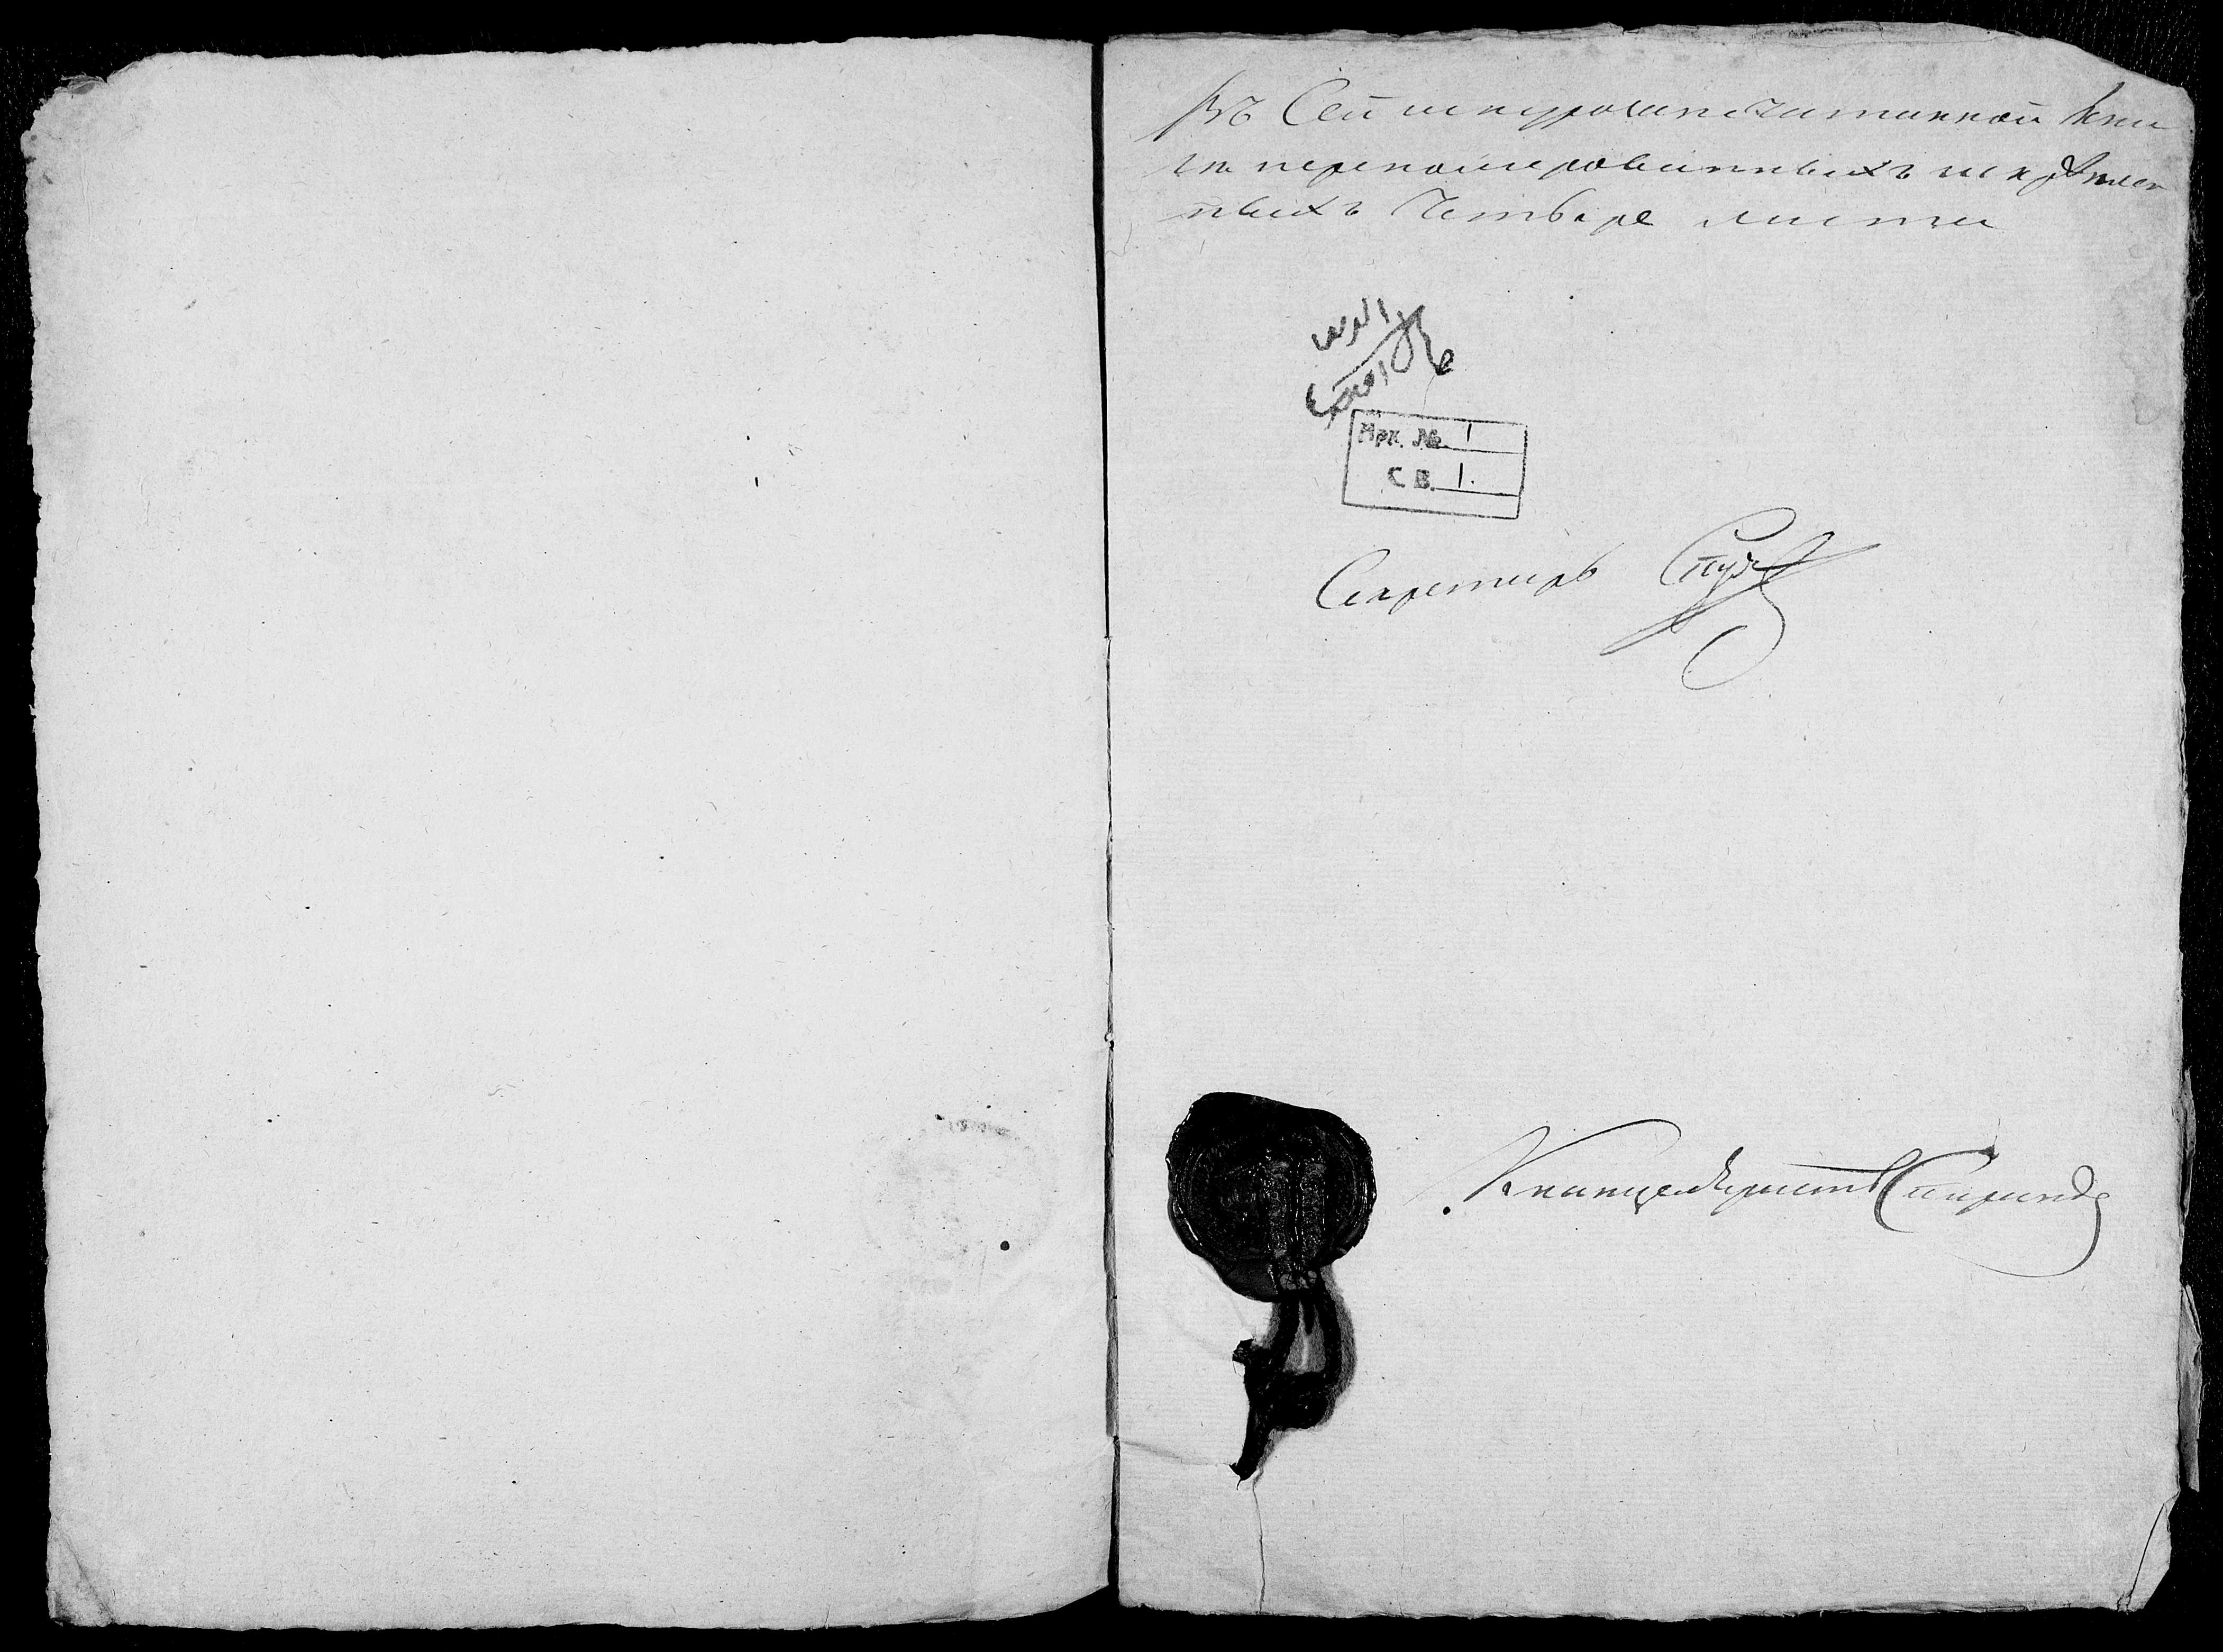 Въ Сей шнурозапечатанной кни
ге переномерованныхъ и скреплен
ныхъ Четыре листа
Мрк. № 1
С В. 1.
Секретарь
Канцеляристъ